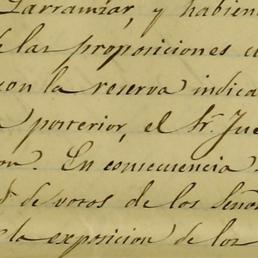 Larramzar, y habien
de las proposiciones co
con la reserva indica
posterior, el Sr. Jue
on. En consecuencia
de votos de los Seño
la exposicion de los